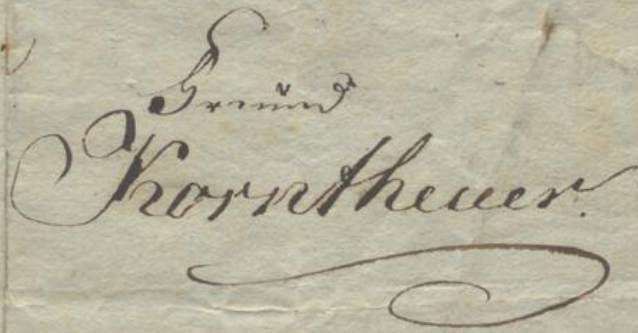 Freund
Korntheuer.